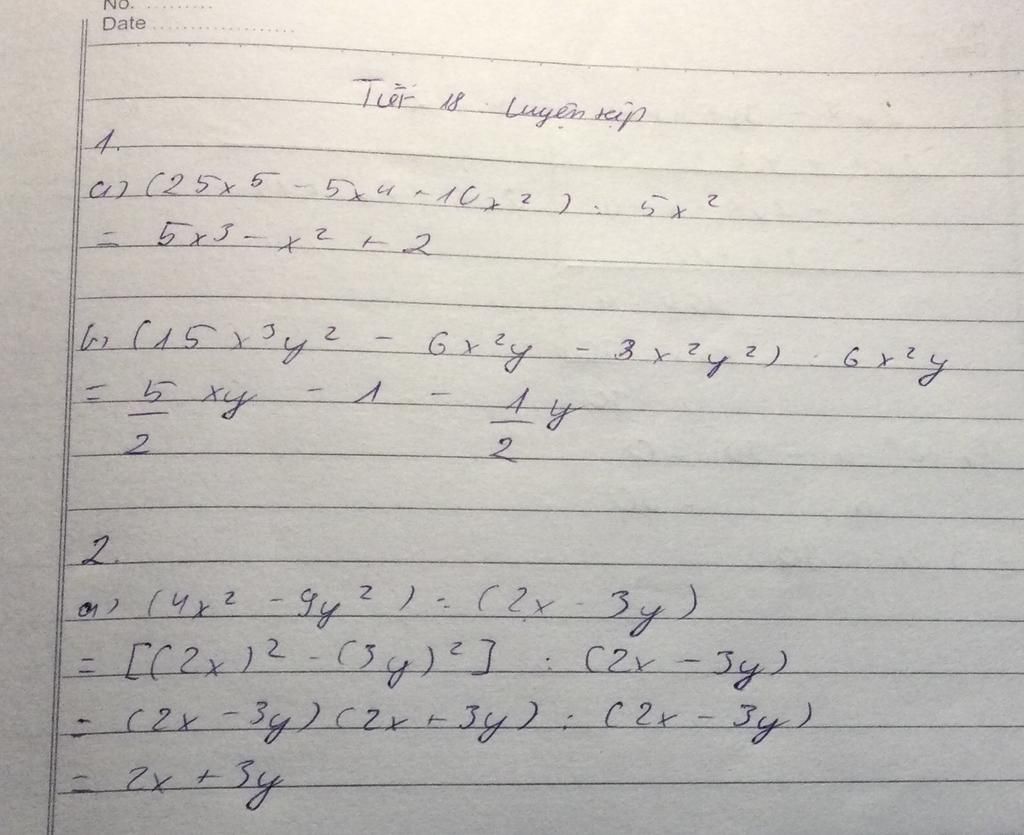 No. .........
Date ..................
Tiết 18. Luyện tập
1.
a) (25x⁵ - 5x⁴ + 10x²) : 5x²
= 5x³ - x² + 2
b) (15x³y² - 6x²y - 3x²y²) : 6x²y
= 5/2 xy - 1 - 1/2 y
2.
a) (4x² - 9y²) : (2x - 3y)
= [(2x)² - (3y)²] : (2x - 3y)
= (2x - 3y)(2x + 3y) : (2x - 3y)
= 2x + 3y